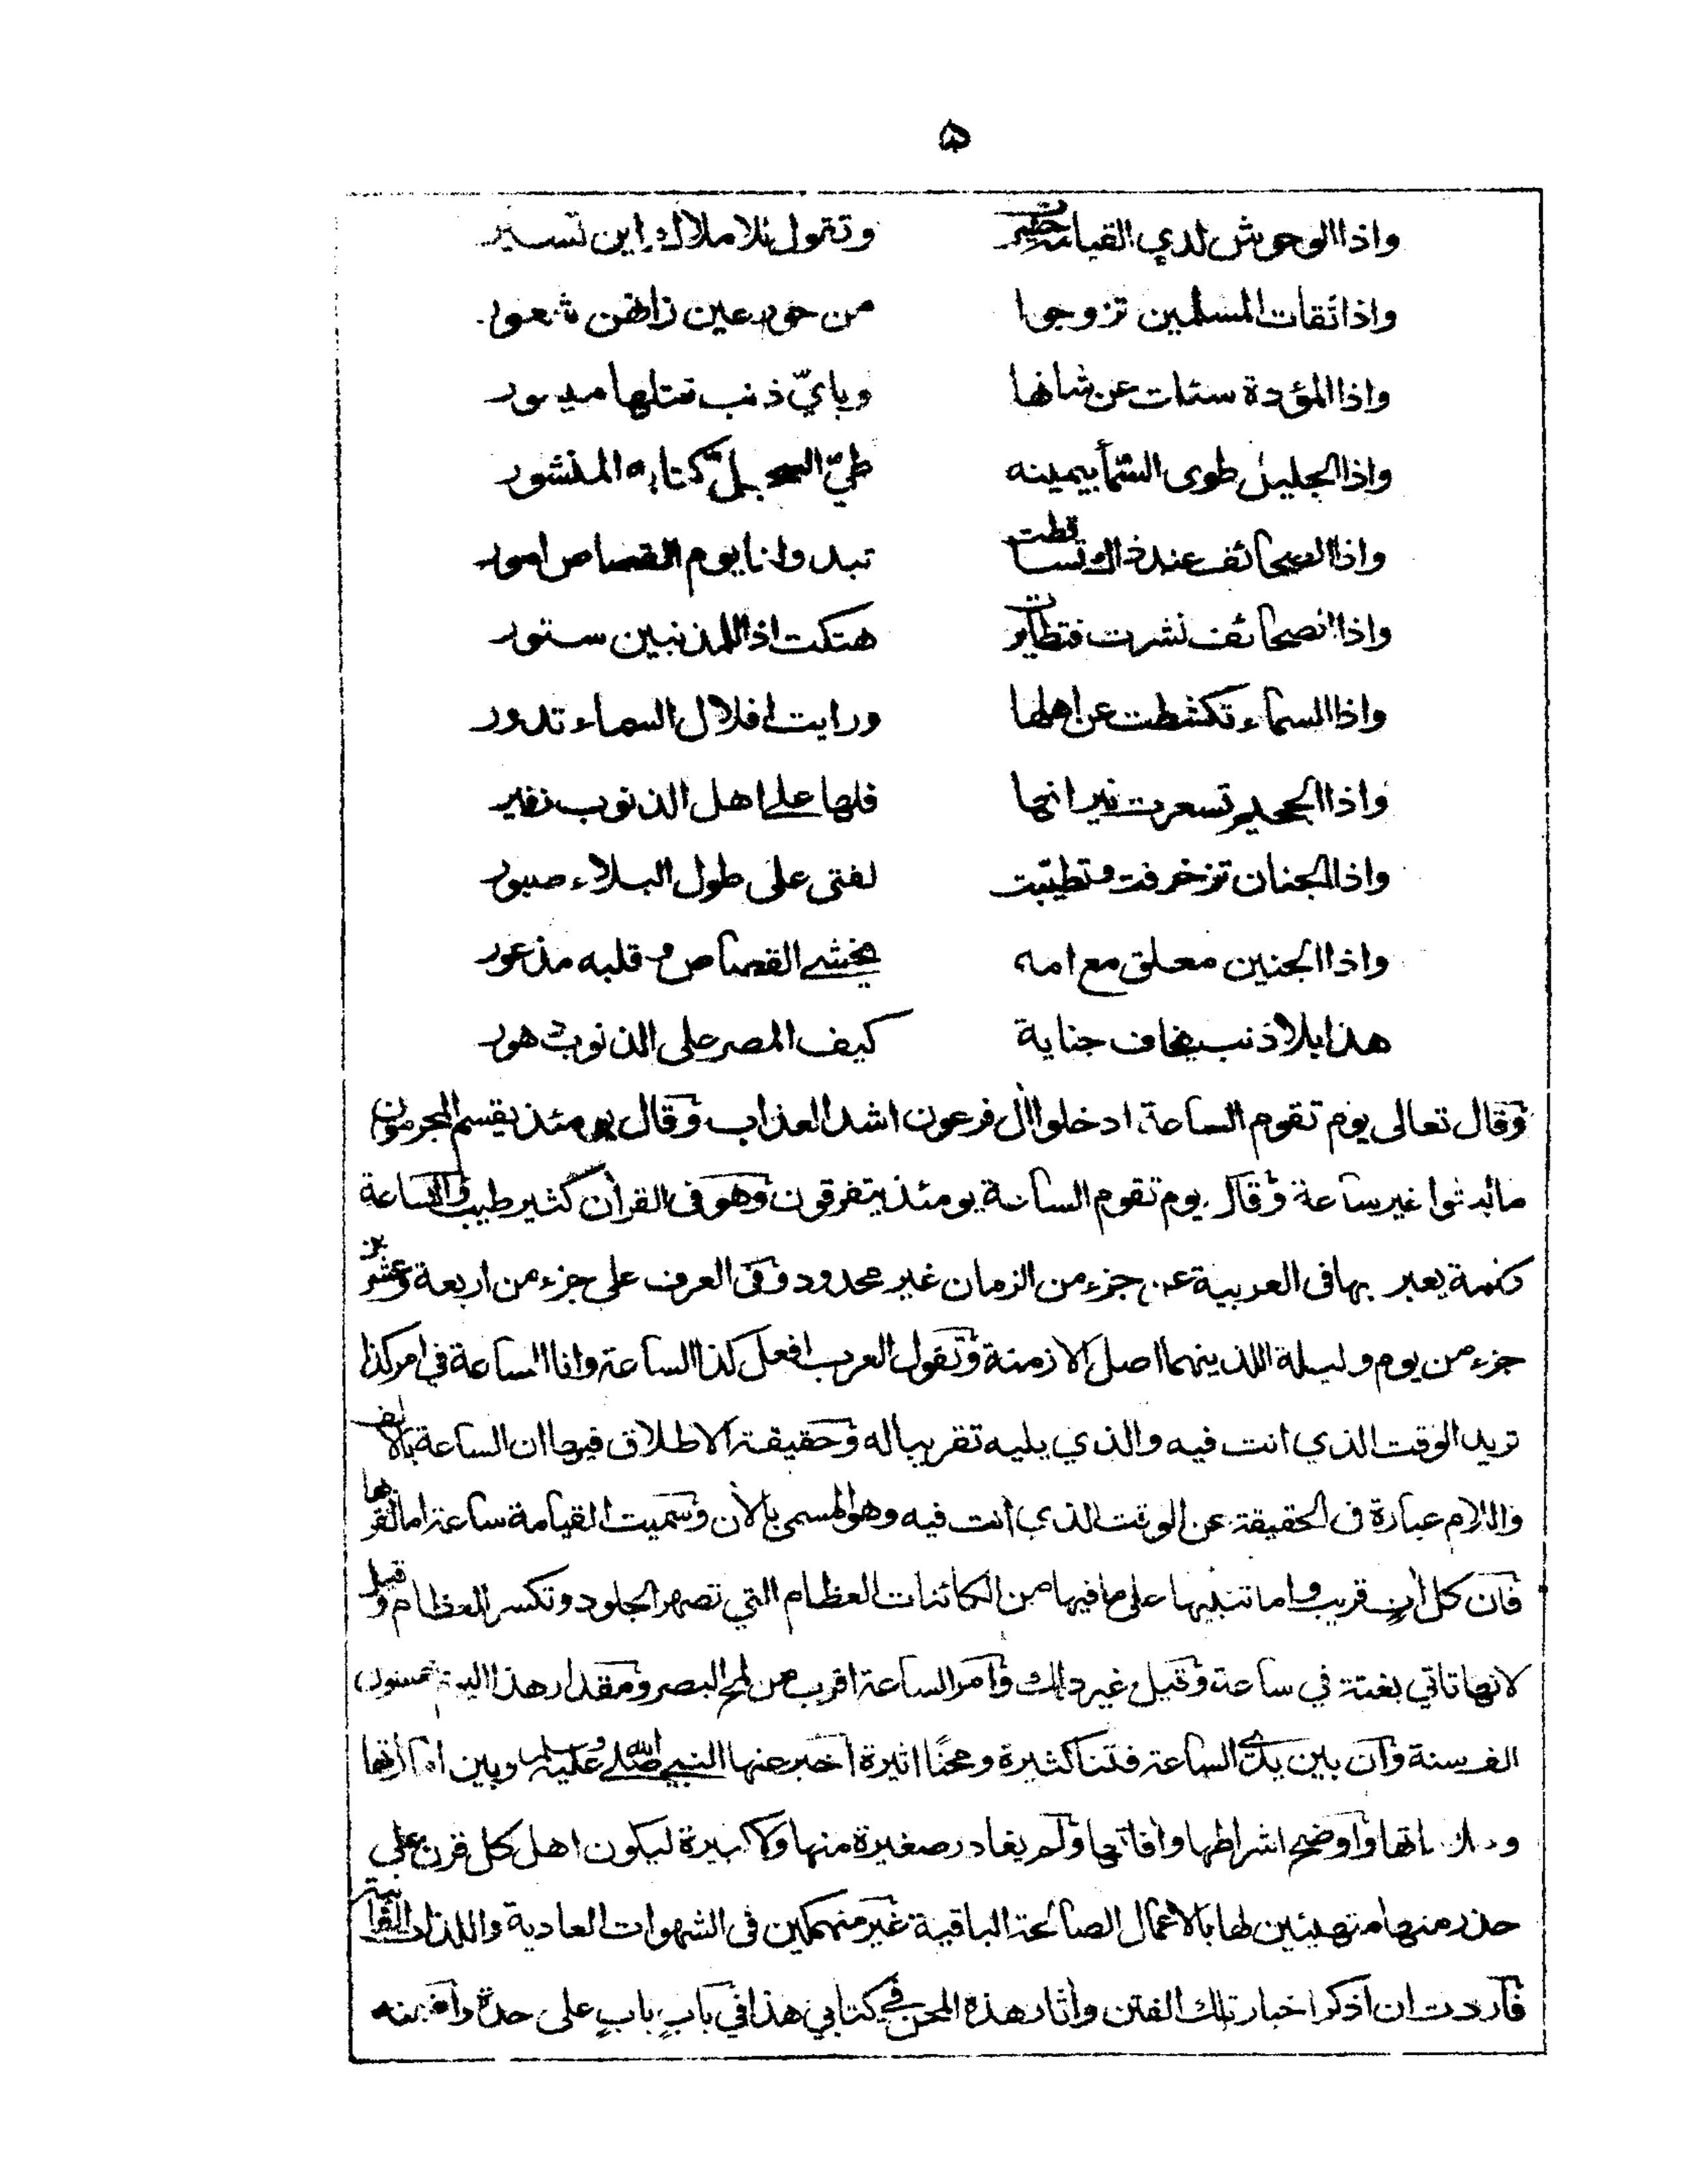 ۵
واذا الوحوش لدي القيامة حشرت وتقول للاملاك اين تسير
واذا تقات المسلمين تزوجوا من حور عين زانهن شعور
واذا المؤدة سئلت عن شانها وبايّ ذنب قتلها ميسور
واذا الجليل طوى السمأ بيمينه طيّ السجل كتابه المنشور
واذا الصحائف عند ذاك تساقطت تبدو لنا يوم القصاص امور
واذا الصحائف نشرت فتطايرت هتكت اذا للمذنبين ستور
واذا السماء تكشطت عن اهلها ورايت افلاك السماء تدور
واذا الجحيم تسعرت نيرانها فلها على اهل الذنوب زفير
واذا الجنان تزخرفت وتطيّبت لفتى على طول البلاء صبور
واذا الجنين معلق مع امه يخشى القصاص وقلبه مذعور
هذا بلا ذنب يخاف جناية كيف المصر على الذنوب دهور
وقال تعالى يوم تقوم الساعة ادخلوا اٰل فرعون اشد العذاب وقال يومئذ يقسم المجرمون
مالبثوا غير ساعة وقال يوم تقوم الساعة يومئذ يتفرقون وهو فى القراٰن كثير طيب والساعة
كلمة يعبر بها فى العربية عن جزء من الزمان غير محدود وفى العرف على جزء من اربعة وعشرين
جزء من يوم وليلة اللذينهما اصل الازمنة وتقول العرب افعل كذا الساعة وانا الساعة في امر كذا
تريد الوقت الذي انت فيه والذي يليه تقريبا له وحقيقة الاطلاق فيها ان الساعة بالالف
واللام عبارة فى الحقيقة عن الوقت الذي انت فيه وهو المسمى بالأن وسميت القيامة ساعة اما لقربها
فان كل اٰت قريب واما تنبيها على ما فيها من الكائنات العظام التي تصهر الجلود وتكسر العظام وقيل
لانها تاتي بغتة في ساعة وقيل غير ذلك وامر الساعة اقرب من لمح البصر ومقدار هذا اليوم خمسون
الف سنة وان بين يدي الساعة فتنا كثيرة ومحنًا اثيرة اخبر عنها النبي صلى الله عليه وسلم وبين اماراتها
وعلاماتها واوضح اشراطها واٰفاتها ولم يغادر صغيرة منها ولا كبيرة ليكون اهل كل قرن على
حذر منها متهيئين لها بالاعمال الصالحة الباقية غير منهمكين فى الشهوات العادية واللذات الفانية
فاردت ان اذكر اخبار تلك الفتن واٰثار هذه المحن في كتابي هذا في بابٍ بابٍ على حدة